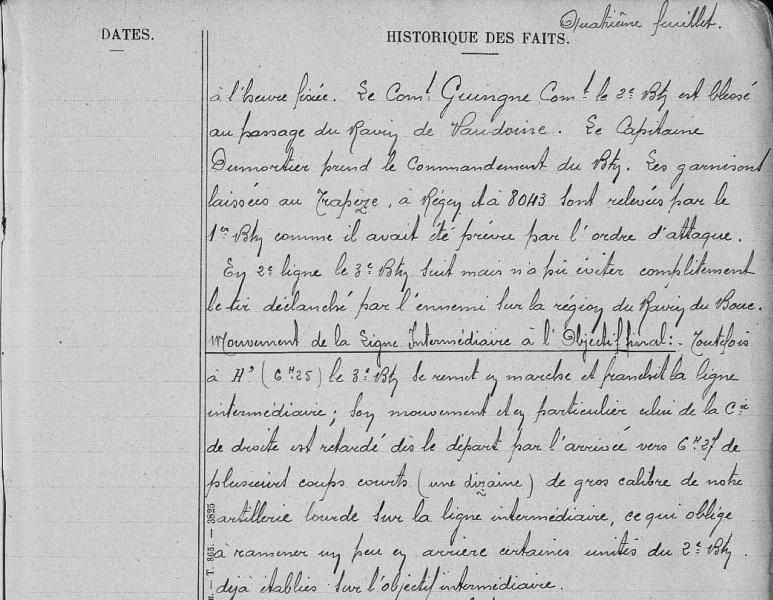 Quatrième feuillet.
DATES.
HISTORIQUE DES FAITS.
à l'heure fixée. Le Comt Guingne Comt le 2e Bton est blessé
au passage du Ravin de Vaudoine. Le Capitaine
Dumortier prend le commandement du Bton. Les garnisons
laissées au Trapèze, à Régey et à 8043 sont relevées par le
1er Bton comme il avait été prévu par l'ordre d'attaque.
En 2e ligne le 3e Bton suit mais n'a pu éviter complètement
le tir déclanché par l'ennemi sur la région du Ravin du Bouc.
Mouvement de la Ligne Intermédiaire à l'Objectif final:- Toutefois
à H3 (6H25) le 3e Bton se remet en marche et franchit la ligne
intermédiaire; son mouvement et en particulier celui de la Cie
de droite est retardé dès le départ par l'arrivée vers 6H27 de
plusieurs coups courts (une dizaine) de gros calibre de notre
artillerie lourde sur la ligne intermédiaire, ce qui oblige
à ramener un peu en arrière certaines unités du 2e Bton
déjà établies sur l'objectif intermédiaire.
— T. 865. — 3825